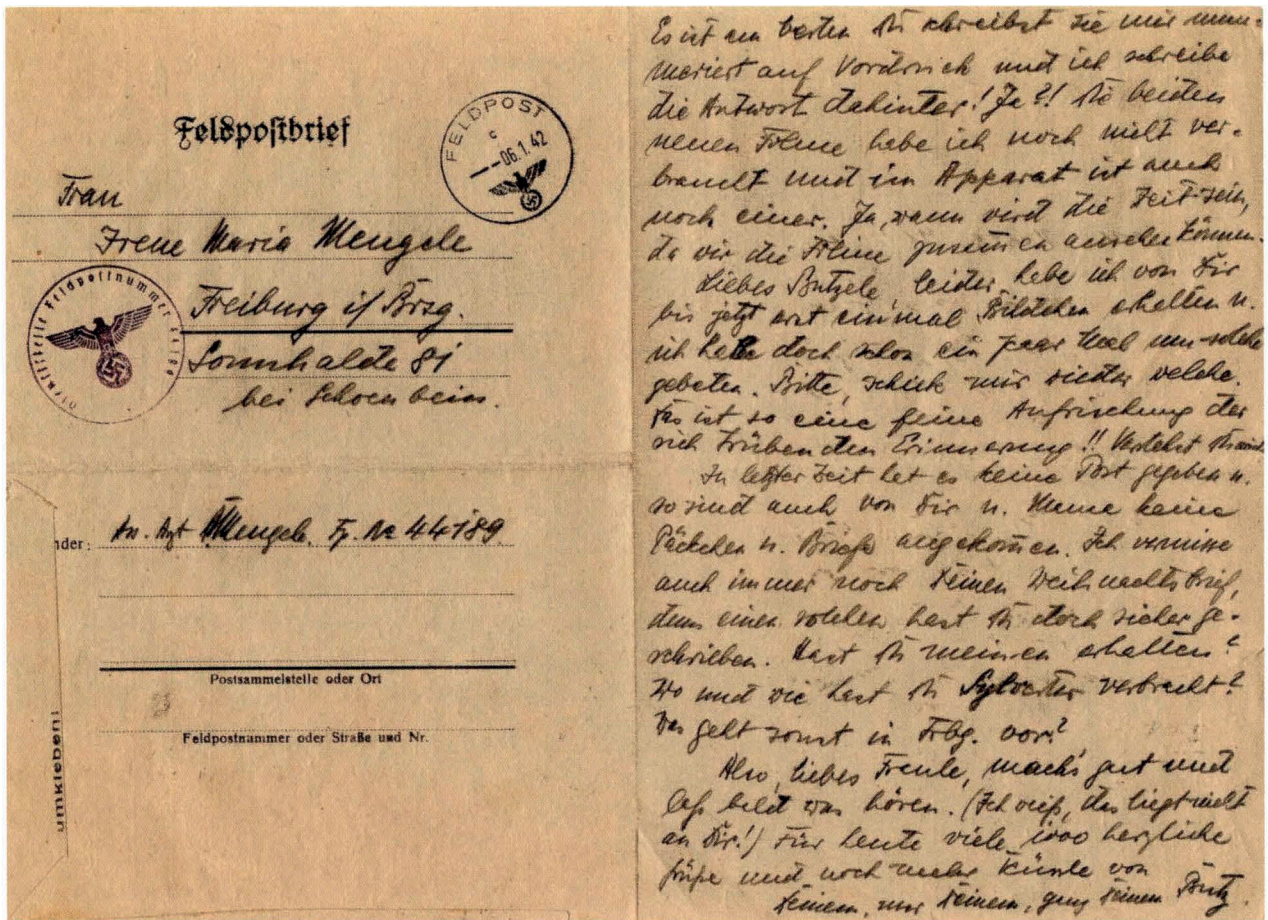 Feldpostbrief
FELDPOST
c
06.1.42
Frau
Irene Maria Mengele
Freiburg i/ Brsg.
Sonnhalde 81
bei Schoenbein.
Feldpostnummer
nder: Mengele. Fp. No 44189.
Postsammelstelle oder Ort
Feldpostnummer oder Straße und Nr.
umkleben!
Es ist am besten Du schreibst sie mir num-
meriert auf Vordruck und ich schreibe
die Antwort dahinter! Ja?! Die beiden
neuen Filme habe ich noch nicht ver-
braucht und im Apparat ist auch
noch einer. Ja, wann wird die Zeit sein,
da wir die Filme zusammen ansehen können.
Liebes Butzele, leider habe ich von Dir
bis jetzt erst einmal Bildchen erhalten u.
ich habe doch schon ein paar Mal um solche
gebeten. Bitte, schick mir wieder welche.
Das ist so eine feine Auffrischung der
sich trübenden Erinnerung!! Verstehst Du mich
In letzter Zeit hat es keine Post gegeben u.
so sind auch von Dir u. Mama keine
Päckchen u. Briefe angekommen. Ich vermisse
auch immer noch Deinen Weihnachtsbrief,
denn einen solchen hast Du doch sicher ge-
schrieben. Hast Du meinen erhalten?
Wo und wie hast Du Sylvester verbracht?
Was geht sonst in Frbg. vor?
Also, liebes Freule, mach's gut und
laß bald was hören. (Ich weiß, das liegt nicht
an Dir!) Für heute viele 1000 herzliche
Grüße und noch mehr Küssle von
Deinem, nur Deinem, ganz Deinem Butz